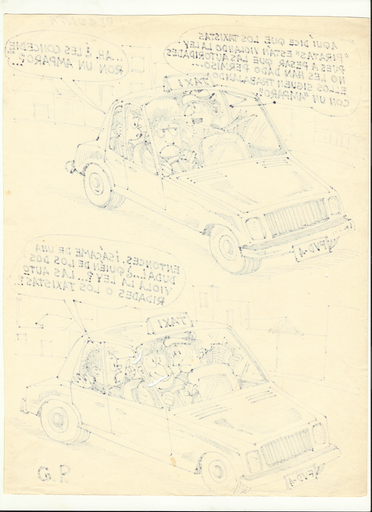 AQUÍ DICE QUE LOS TAXISTAS
"PIRATAS" ESTÁN VIOLANDO LA LEY
PUES A PESAR QUE LAS AUTORIDADES
NO LES HAN DADO PERMISO...
ELLOS SIGUEN TRABAJANDO
CON UN "AMPARO"
...AH, ¿LES CONCEDIE
RON UN AMPARO?
TAXI
ENTONCES, ¡SÁCAME DE UNA
DUDA! ¿QUIÉN DE LOS DOS
VIOLA LA LEY? ¿LAS AUTO
RIDADES O LOS TAXISTAS?
TAXI